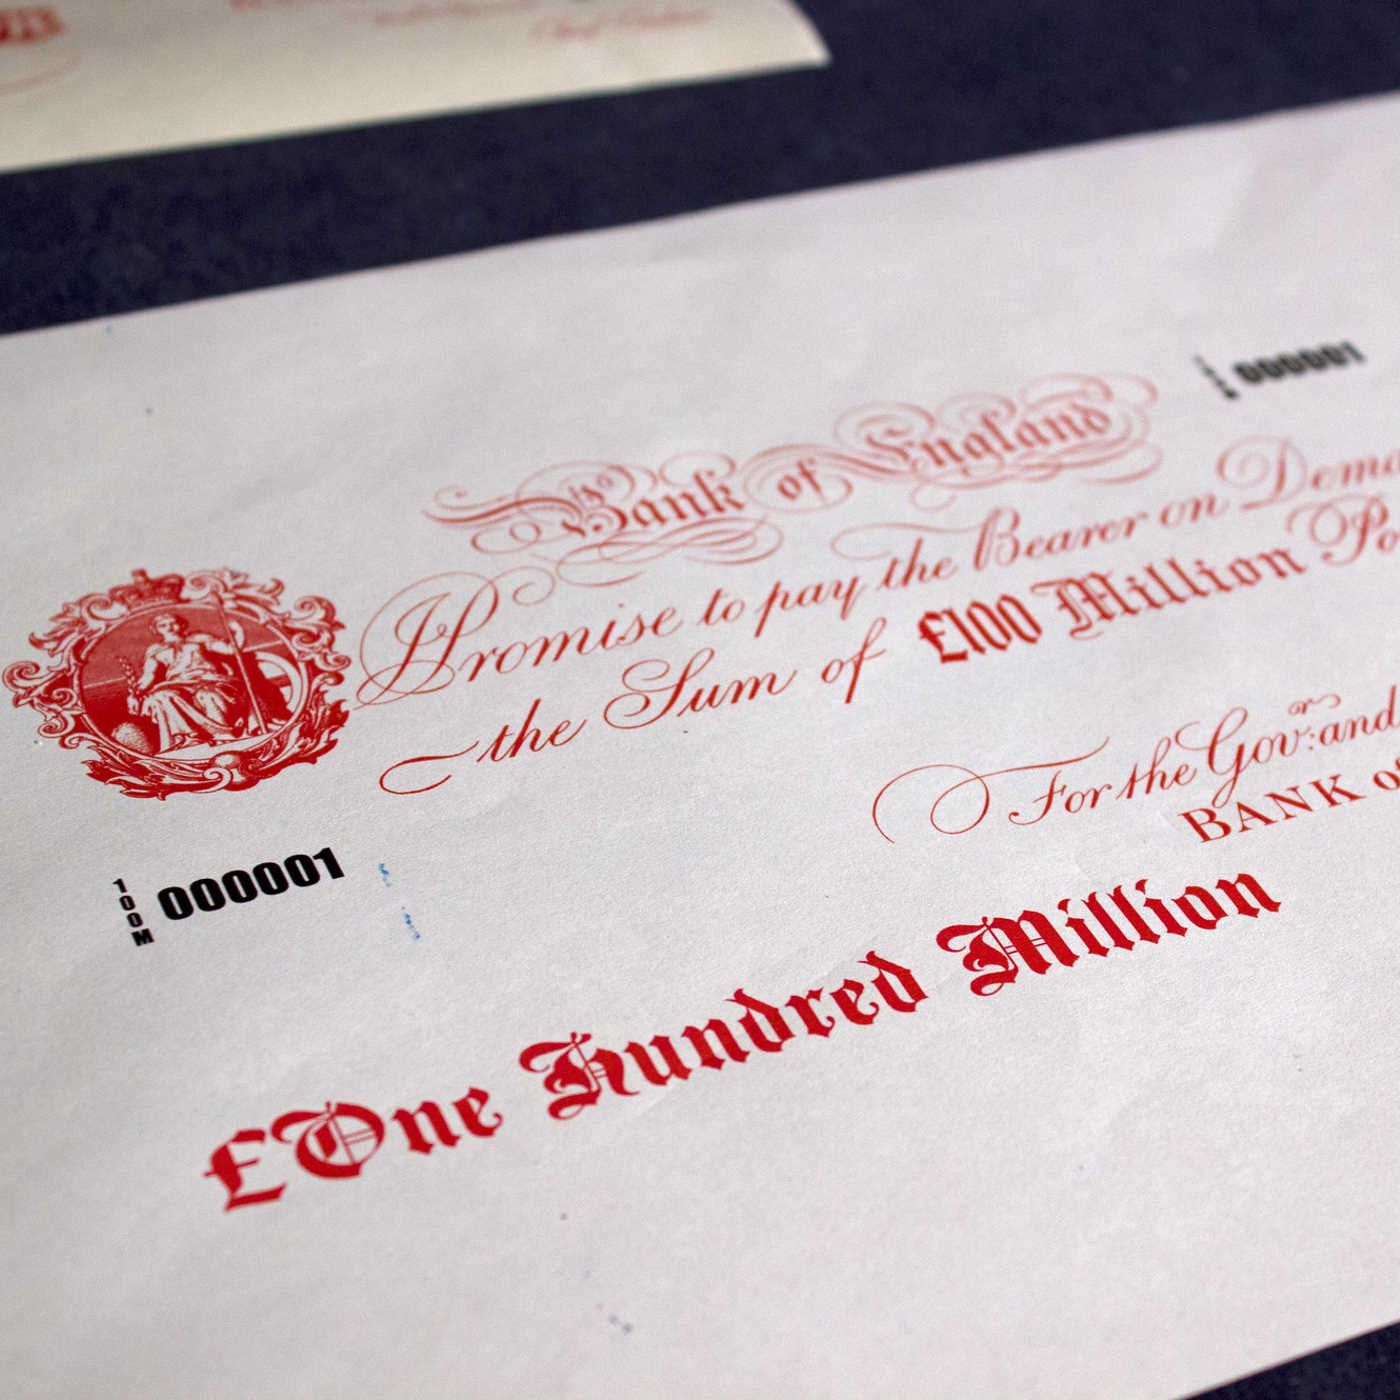 000001
Bank of England
Promise to pay the Bearer on
the Sum of £100 Million
For the Gov:r and
BANK
100M 000001
£One Hundred Million